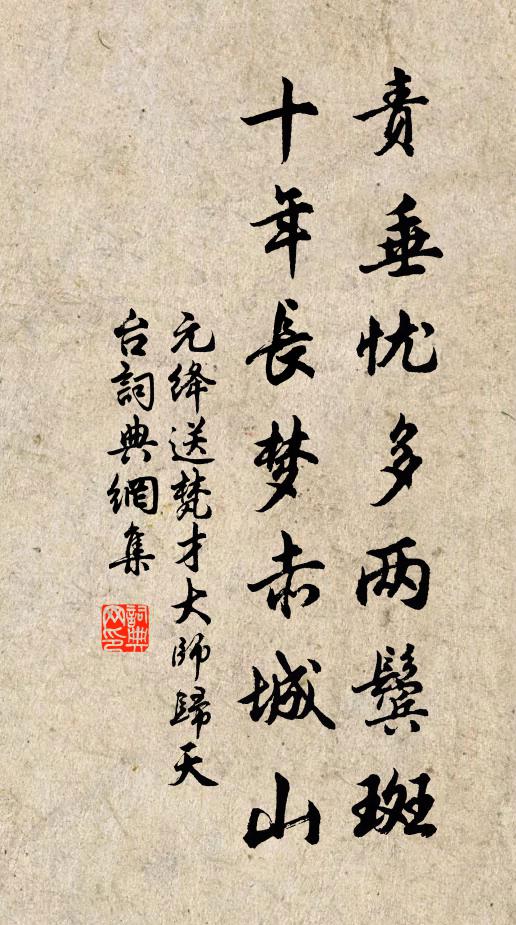 责垂忧多两鬓斑
十年長梦赤城山
元绛送梵才大师歸天
台詞典網集
詞典网印